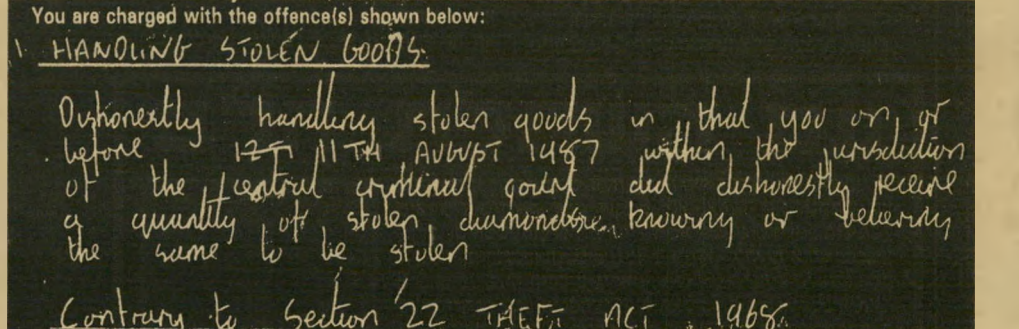 You are charged with the offence(s) shown below:
1. HANDLING STOLEN GOODS.
Dishonestly handling stolen goods in that you on or
before 11TH AUGUST 1987 within the jurisdiction
of the central criminal court did dishonestly receive
a quantity of stolen knowing or believing
the same to be stolen
Contrary to Section 22 THEFT ACT 1968.